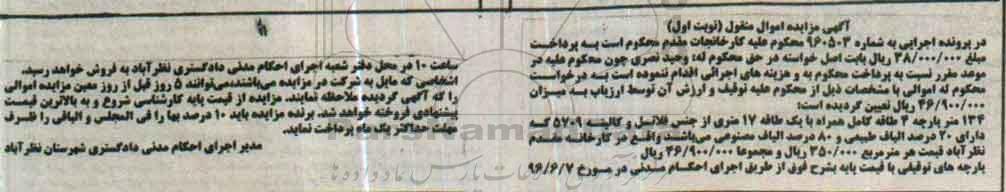 آگهی مزایده اموال منقول (نوبت اول)
در پرونده اجرایی به شماره ۹۶۰۵۰۳ محکوم علیه کارخانجات مقدم محکوم است به پرداخت
مبلغ ۳۸/۰۰۰/۰۰۰ ریال بابت اصل خواسته در حق محکوم له: وحید نصری چون محکوم علیه در
موعد مقرر نسبت به پرداخت محکوم به و هزینه های اجرائی اقدام ننموده است به درخواست
محکوم له اموالی با مشخصات ذیل از محکوم علیه توقیف و ارزش آن توسط ارزیاب به میزان
۴۶/۹۰۰/۰۰۰ ریال تعیین گردیده است:
۱۳۴ متر پارچه ۴ طاقه کامل همراه با یک طاقه ۱۷ متری از جنس فلانسل و کالیته ۵۷۰۹ که
دارای ۲۰ درصد الیاف طبیعی و ۸۰ درصد الیاف مصنوعی می‌باشند واقع در کارخانه مقدم
نظرآباد قیمت هر مترمربع ۳۵۰/۰۰۰ ریال و مجموعا ۴۶/۹۰۰/۰۰۰ ریال
پارچه های توقیفی با قیمت پایه بشرح فوق از طریق اجرای احکام مدنی در مورخ ۹۶/۶/۷
ساعت ۱۰ در محل دفتر شعبه اجرای احکام مدنی دادگستری نظرآباد به فروش خواهد رسید.
اشخاصی که مایل به شرکت در مزایده می‌باشند،می‌توانند ۵ روز قبل از روز معین مزایده اموالی
را که آگهی گردیده ملاحظه نمایند. مزایده از قیمت پایه کارشناسی شروع و به بالاترین قیمت
پیشنهادی فروخته خواهد شد. برنده مزایده باید ۱۰ درصد بها را فی المجلس و الباقی را ظرف
مهلت حداکثر یک ماه پرداخت نماید.
مدیر اجرای احکام مدنی دادگستری شهرستان نظرآباد